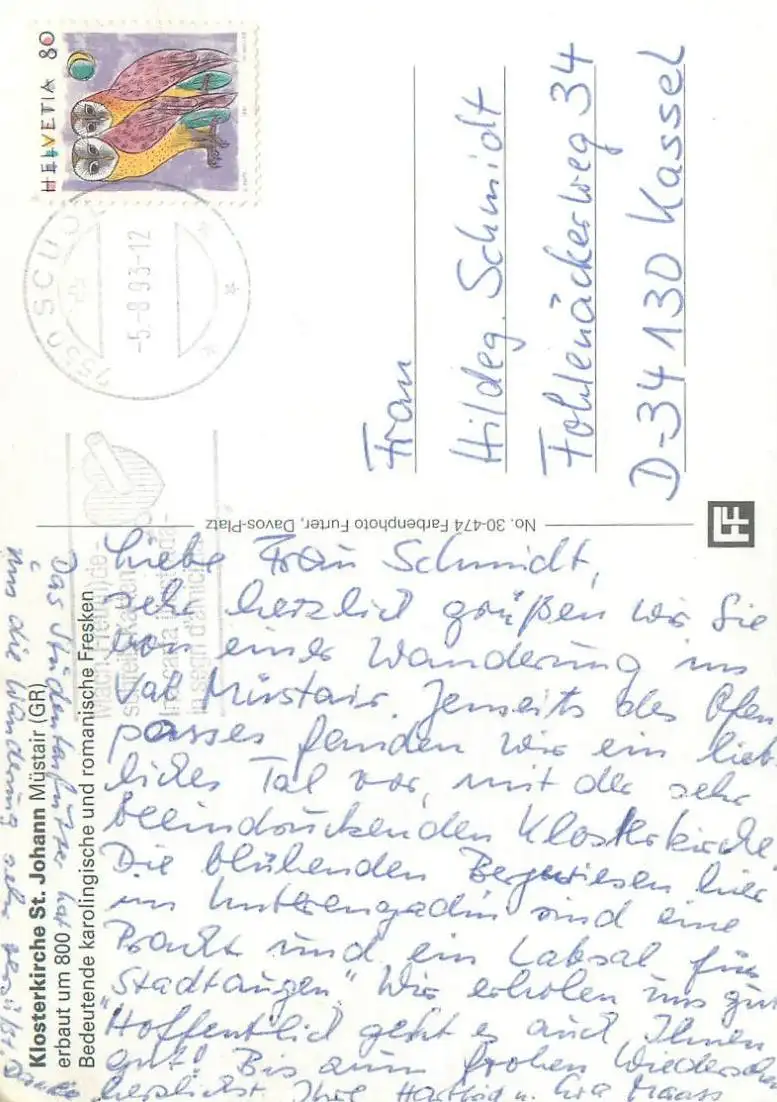 HELVETIA 80
7550 SCUOL
-5.-8.93-12
Frau
Hildeg. Schmidt
Fohlenäckerweg 34
D-34130 Kassel
No. 30-474 Farbenphoto Furter, Davos-Platz
FF
Klosterkirche St. Johann Müstair (GR)
erbaut um 800
Bedeutende karolingische und romanische Fresken
Liebe Frau Schmidt,
sehr herzlich grüßen wir Sie
von einer Wanderung ins
Val Müstair. Jenseits des Ofen
passes fanden wir ein lieb-
liches Tal vor, mit der sehr
beeindruckenden Klosterkirche
Die blühenden Bergwiesen hier
im Unterengadin sind eine
Pracht und ein Labsal für
"Stadtaugen" Wir erholen uns gut
Hoffentlich geht es auch Ihnen
gut! Bis zum frohen Wiedersehn
herzlichst Ihre Hartwig u. Eva Maass
Das hat
ihm die Wanderung sehr